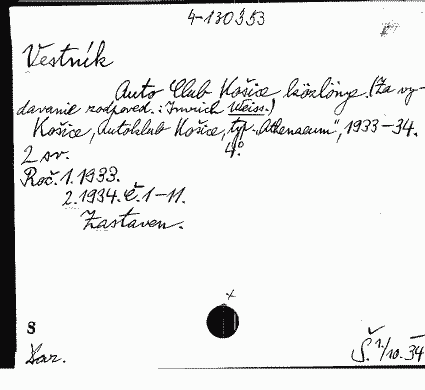 4-130353
Vestník
Auto Club Košice közlönye. (Za vy-
davanie zodpoved.: Imrich Weiss.)
Košice, Autoklub Košice, typ. „Athenaeum", 1933-34.
2 sv. 4°
Roč. 1. 1933.
2. 1934. č. 1-11.
Zastaven.
S
Š. 1./10. 34